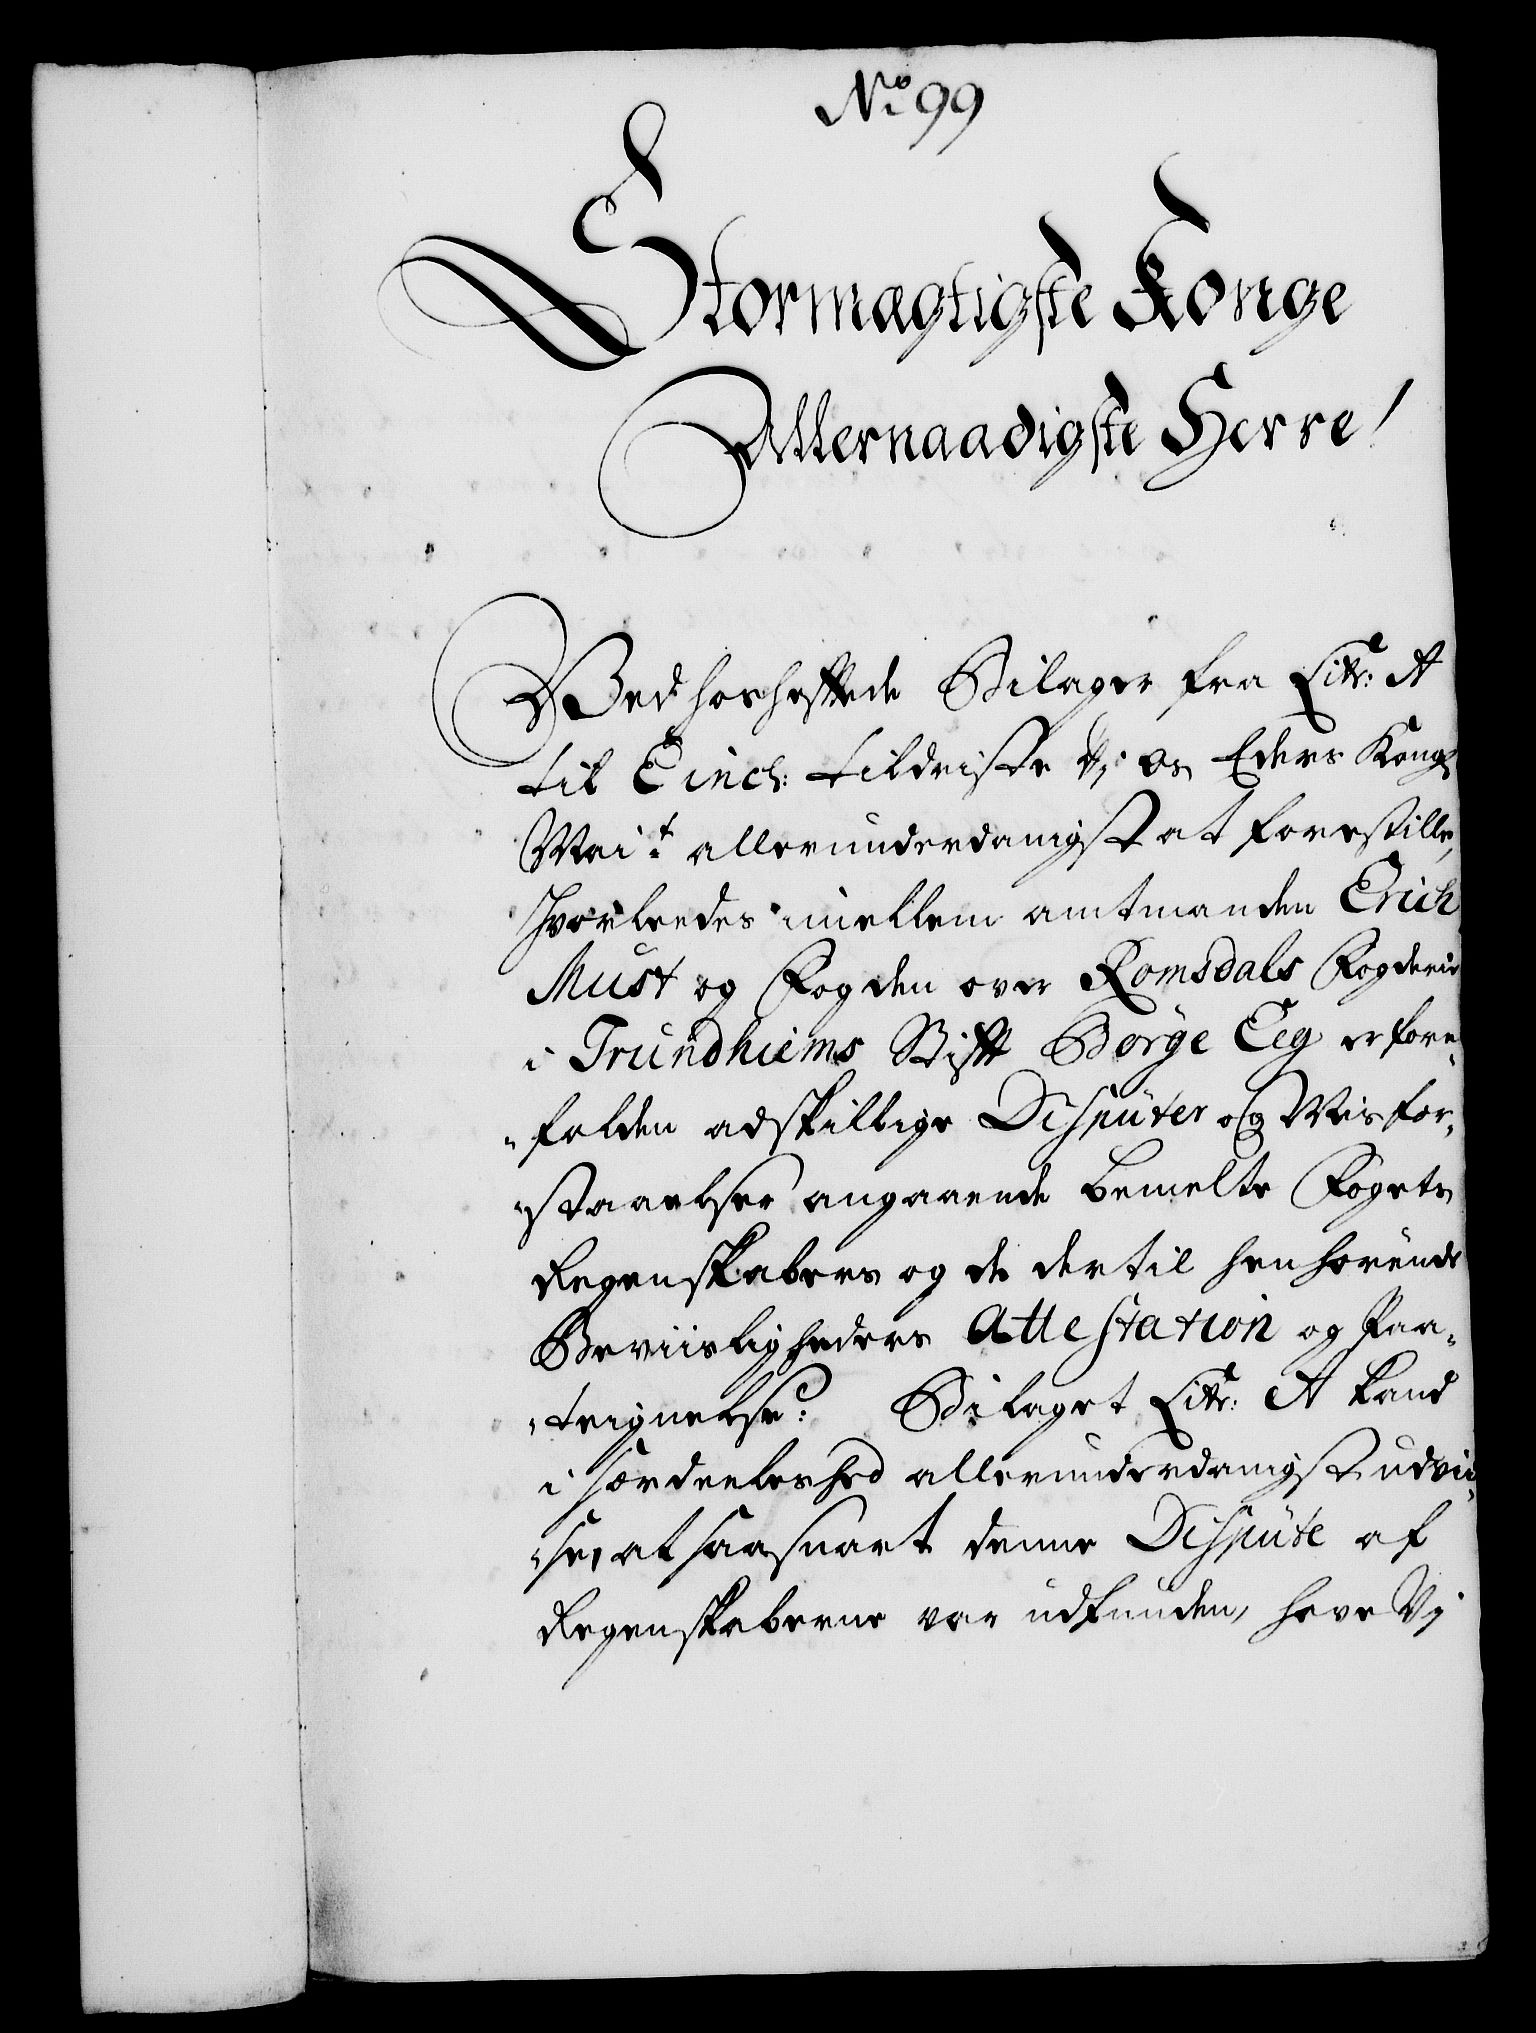 No. 99
Stormægtigste Konge
Allernaadigste Herre!
Ved hoshæftede Bilager fra Litr: A
til E incl: tildriste Vi os Eders Kongl
Mai.t allerunderdanigst at forestille,
hvorledes imellem amtmanden Erich
Must og Fogden over Romsdals Fogderie
i Trundhiems Stift Børge Eeg er fore„
„falden adskillige Disputer og Misfor„
„staaelser angaaende bemelte Fogets
Regenskabers og de dertil henhørende
Beviisligheders Attestation og Paa„
„teignelse: Bilaget Litr: A kand
i særdeeleshed allerunderdanigst udvii„
„se, at saasnart denne Dispute af
Regenskaberne var udfunden, have Vi